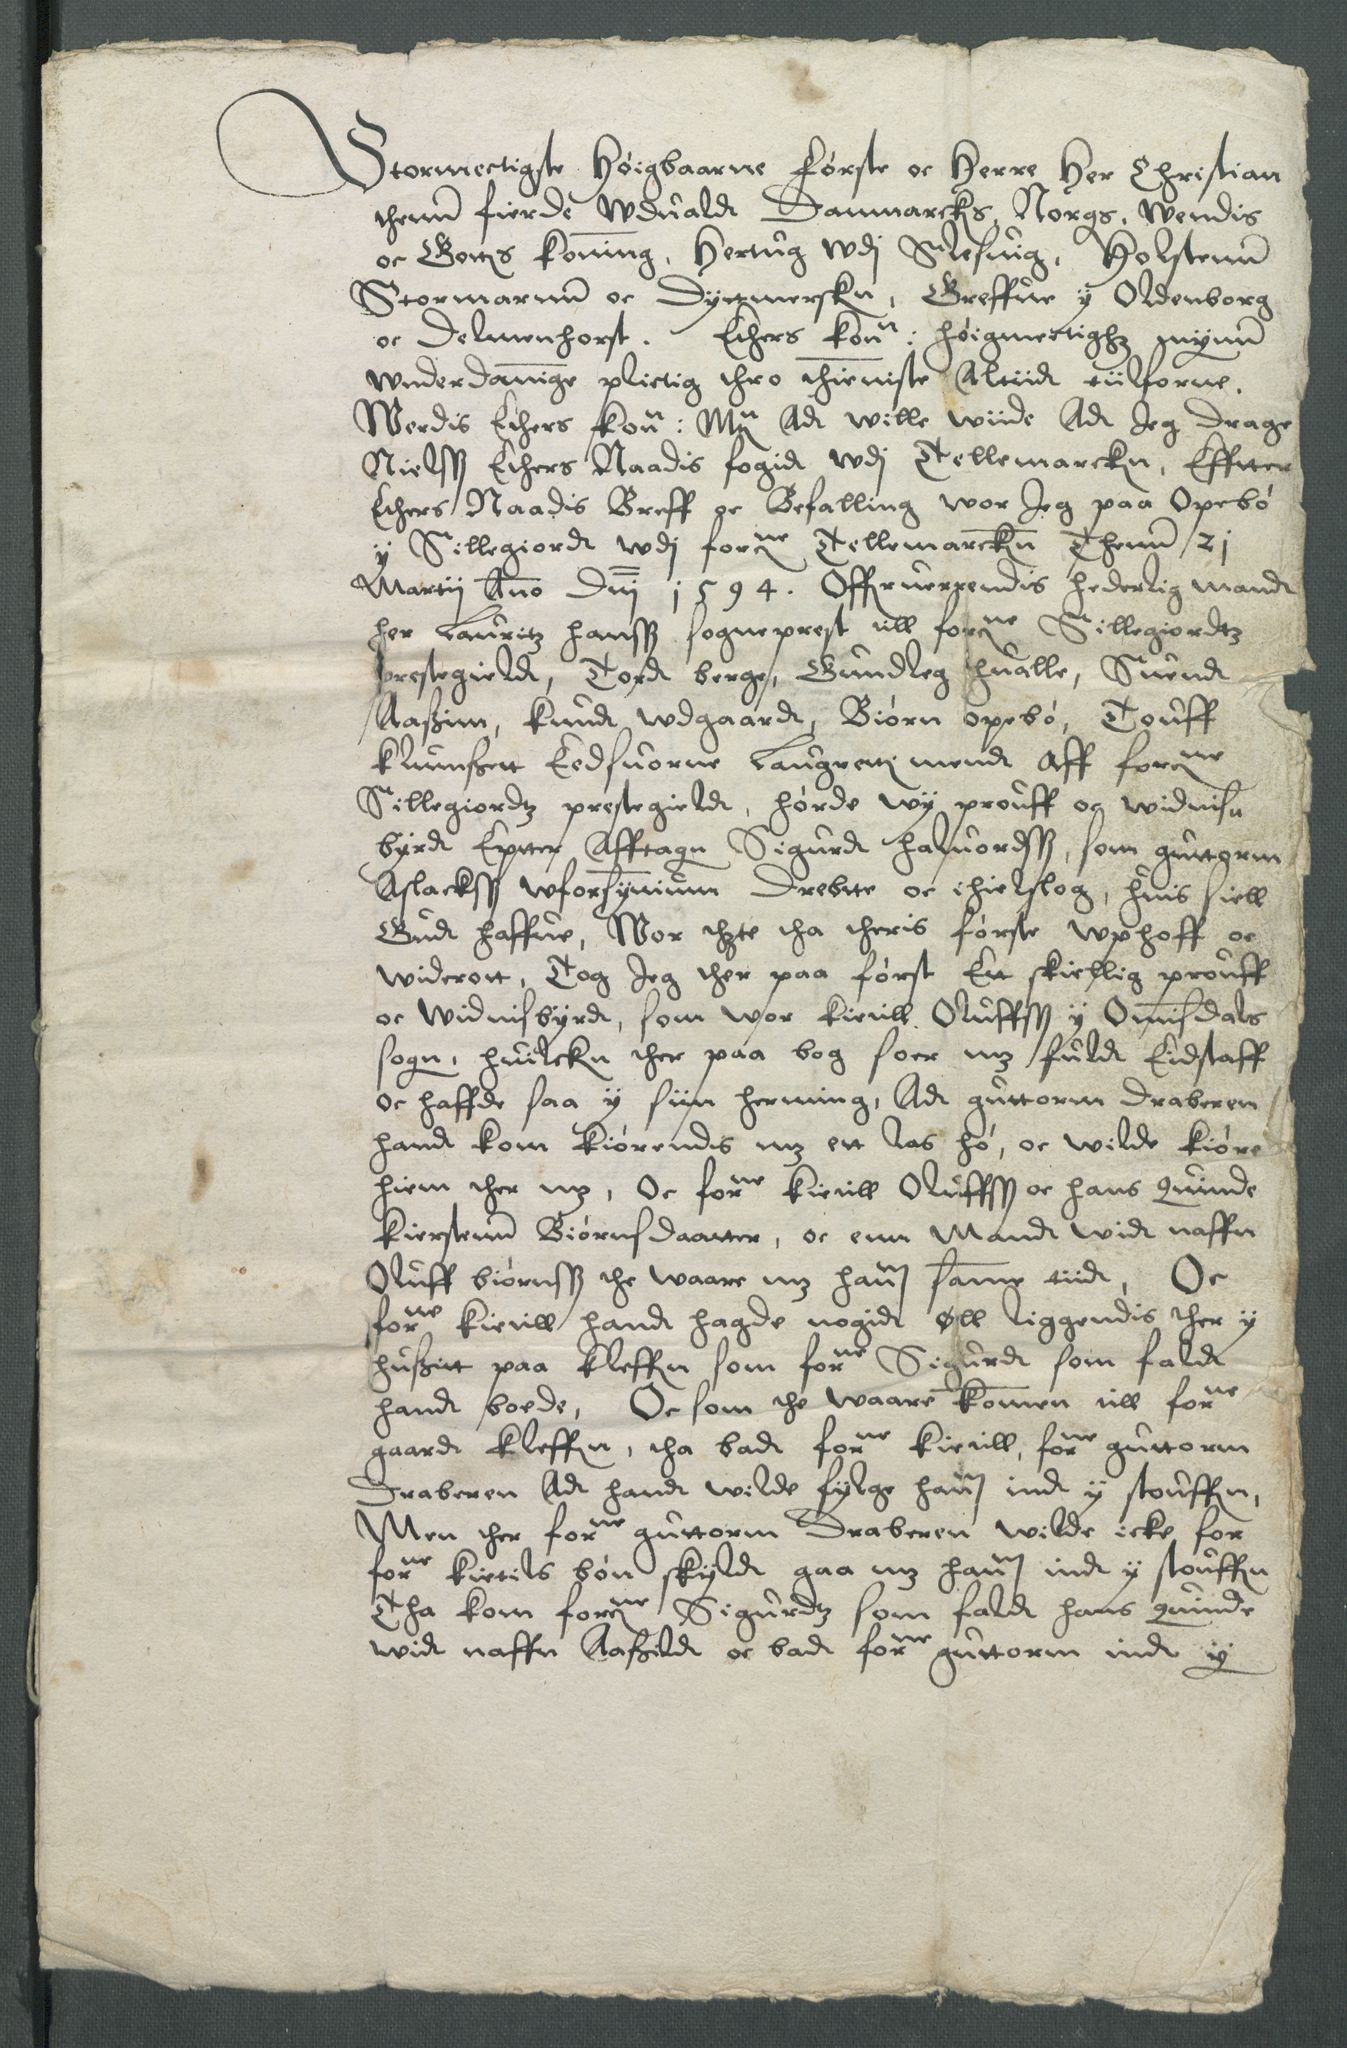 Stormectigste Høigbaarne Første oc Herre Her Christian
thenn fierde Wduald Danmarcks, Norgs, Wendis
oc Gottis Konning, Hertug wdj Slesuig, Holstenn
Stormarnn oc Dyttmerskn, Greffue ÿ Oldenborg
oc Delmenhorst. Ethers Kon: høigmectighz mynn
wnderdannige plictig thro thieniste Altiid tilforne.
Werdis Ethers Kon: Mtt Ad wille wiide Ad Jeg Drage
Nielssøn Ethers Naadis fogid wdj Tellemarckn, Effter
Ethers Naadis Breff oc Befalling wor Jeg paa Opebø
ÿ Sillegiord wdj forne Tellemarckn Thenn 21
Martij Ano Dnj 1594. Offueruerrendis hederlig mand
her Lauritz Hanssøn sogneprest till forne Sillegiordtz
prestegield, Tord berge, Gundleg Hualle, Suend
Aassim, Knud wdgaard, Biørn opebø, Touff
Klumsett Eedsuorne Laugrettis mend Aff forne
Sillegiordtz prestegield, hørde wÿ prouff oc widnis
byrd Epter Afftagn Sigurd Haluordssøn, som guttorm
Aslackssøn wforsynium Drebte oc ihielslog, huis siell
Gud haffue, Wor thte tha theris første wphoff oc
widerott, Tog Jeg ther paa først Ett skiellig prouff
oc widnisbyrd, som wor Kietill Oluffssøn ÿ Omnisdals
sogn, huilckn ther paa bog soer mz fuld Eidstaff
oc haffde saa ÿ siin herming, Ad guttorm Draberen
hand kom kiørendis mz ett las hø, oc wilde kiøre
hiem ther mz, Oc forne Kietill Oluffssøn oc hans quinde
Kierstenn Biørnsdaatter, oc enn Mand wid naffn
Oluff biørnssøn the waare mz hannom samme tiid, Oc
forne Kietill hand hagde nogid øll liggendis ther ÿ
hussitt paa Kleffn som forne Sigurd som fald
hand boede, Oc som the waare kommen till forne
gaard Kleffn, tha bad forne Kietill, forne guttorm
Draberen Ad hand wilde fylge hannom ind ÿ stouffn,
Men ther forne guttorm Draberen wilde icke for
forne Kietils bøn skyld gaa mz hannom ind ÿ stouffn
Tha kom forne Sigurdtz som fald hans quinde
wid naffn Aashild oc bad forne guttorm ind ÿ